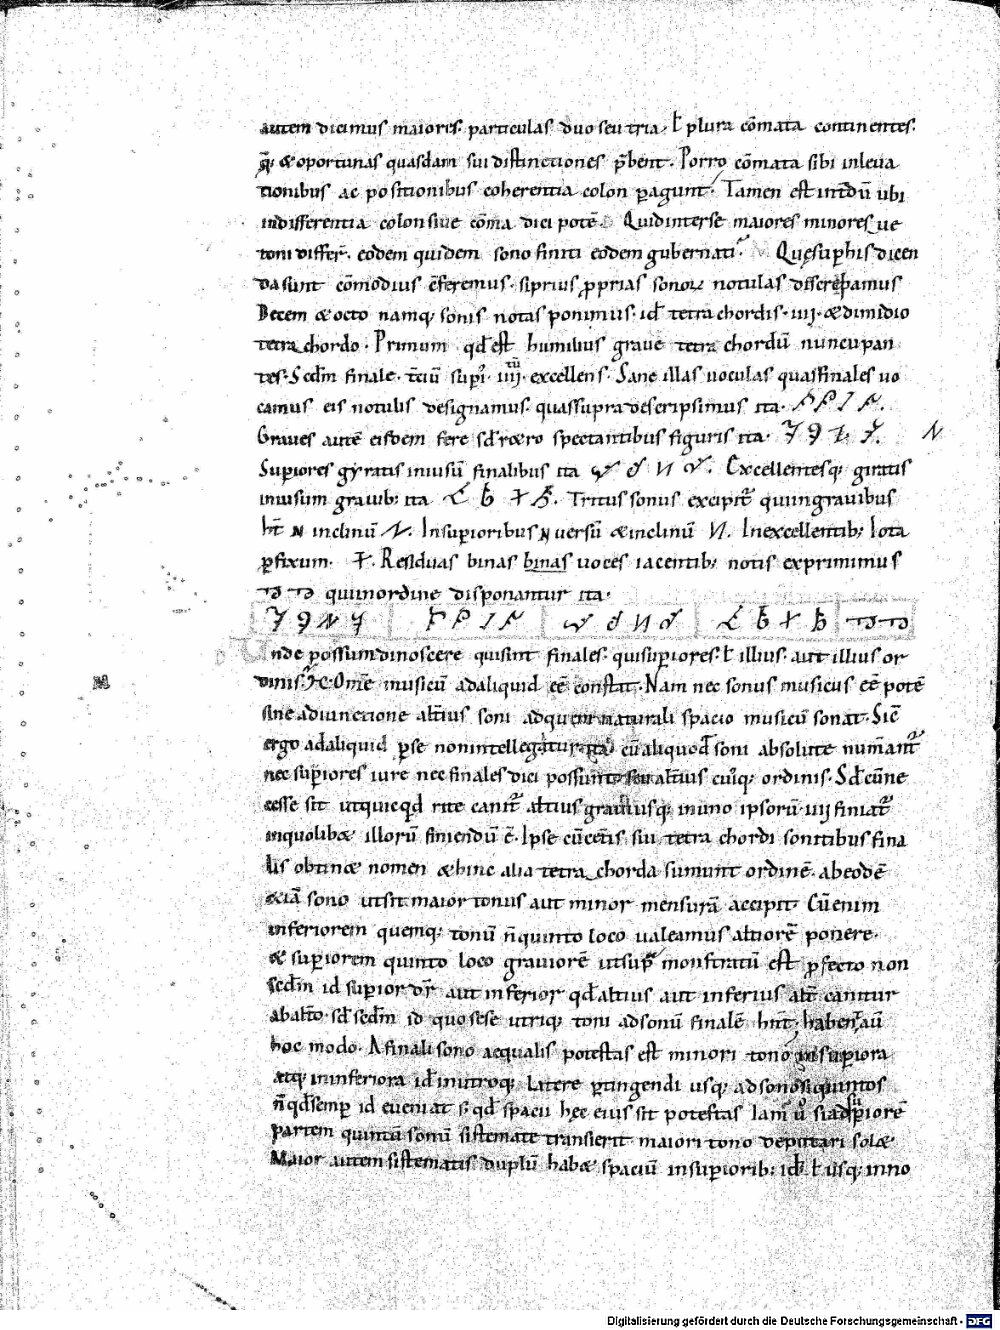 autem dicimus maiores. particulas duo seu tria. ł plura cōmata continentes.
q̄. & oportunas quasdam sui distinctiones p̄bent. Porro cōmata sibi inleua
tionibus ac positionibus coherentia colon ꝑagunt. Tamen est intdū ubi
indifferentia colon siue cōma dici potē. Quid interse maiores minores ue
toni differ̄. eodem quidem sono finiti eodem gubernati. Quę sup his dicen
da sunt cōmodius c̄feremus. si prius ꝓprias sonoꝝ notulas
Decem & octo namq; sonis notas ponimus. id ē tetrachordis. iiij. & dimidio
tetra chordo. Primum qđ est humilius graue tetra chordū nuncupan
tes. Scđm finale. t̄ciū supi. iiij tū. excellens. Sane illas uoculas quas finales uo
camus eis notulis designamus. quas supra descripsimus ita.
Graues autē eisdem fere sđ retro spectantibus figuris ita.
Supiores gyratis iniusū finalibus ita Excellentesq; giratis
iniusum grauib; ita Tritus sonus excipit̄ qui in grauibus
hī̄t N inclinū N. In supioribus uersū & inclinū И. In excellentib; Iota
ꝑfixum. Residuas binas binas uoces iacentib; notis exprimimus
qui in ordine disponantur ita.
nde possum dinoscere qui sint finales. qui supiores. ł illius. aut illius or
dinis. &c. Om̄e musicū ad aliquid ēē constat. Nam nec sonus musicus ēē potē
sine adiunctione alt̄ius soni ad quem naturali spacio musicū sonat. Sic̄
ergo ad aliquid ꝑse non intellegatur. ita cū aliquod soni absolute num̄ant̄
nec supiores iure nec finales dici possunt seu alt̄ius cuiq; ordinis. Sđ cū ne
cesse sit ut quicqđ rite canit̄ altius grauiusq; in uno ipsorū. iiij finiat̄
in quolib& illorū finiendū ē. Ipse cū cet̄is sui tetra chordi sonitibus fina
lis obtin& nomen & hinc alia tetra chorda sumunt ordinē. ab eodē
& iā sono ut sit maior tonus aut minor mensurā accipit. Cū enim
inferiorem quemq; tonū in quinto loco ualeamus altiorē ponere.
& supiorem quinto loco grauiorē ut sup̄ monstratū est ꝓfecto non
sedm id supior dr̄ aut inferior qđ altius aut inferius alt̄ canitur
ab alt̄o. sđ sedm id quo sese utriq; toni ad sonū finalē hn̄t. habent aū
hoc modo. A finali sono aequalis potestas est minori tono in supiora
atq; in inferiora id in utroq; latere ꝑtingendi usq; ad sonos quintos
n̄ qđ semp id eueniat s; qđ spacii hęc eius sit potestas Iam ū si ad supiorē
partem quintū sonū sistemate transierit maiori tono deputari sol&.
Maior autem sistematis duplū hab& spaciū in supiorib; id ł usq; in no
Digitalisierung gefördert durch die Deutsche Forschungsgemeinschaft - DFG